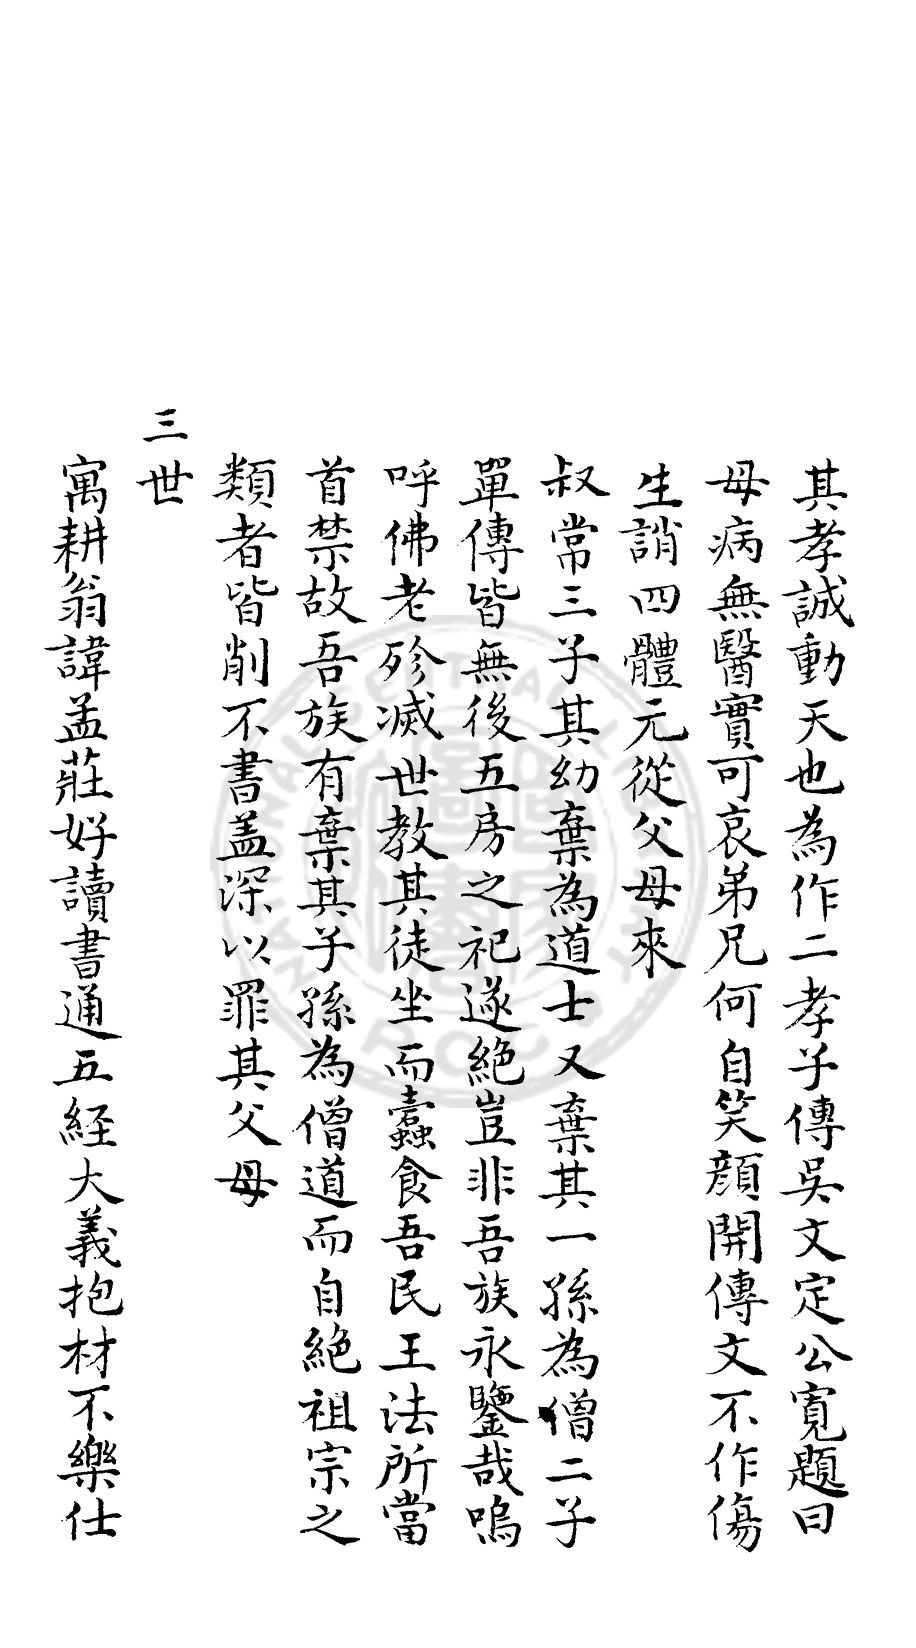 其孝誠動天也為作二孝子傳吳文定公寬題曰
母病無醫實可哀弟兄何自笑顔開傳文不作傷
生誚四體元從父母來
叔常三子其幼棄為道士又棄其一孫為僧二子
單傳皆無後五房之祀遂絕豈非吾族永鑒哉嗚
呼佛老殄滅世教其徒坐而蠹食吾民王法所當
首禁故吾族有棄其子孫為僧道而自絕祖宗之
類者皆削不書盖深以罪其父母
三世
寓耕翁諱孟莊好讀書通五經大義抱材不樂仕